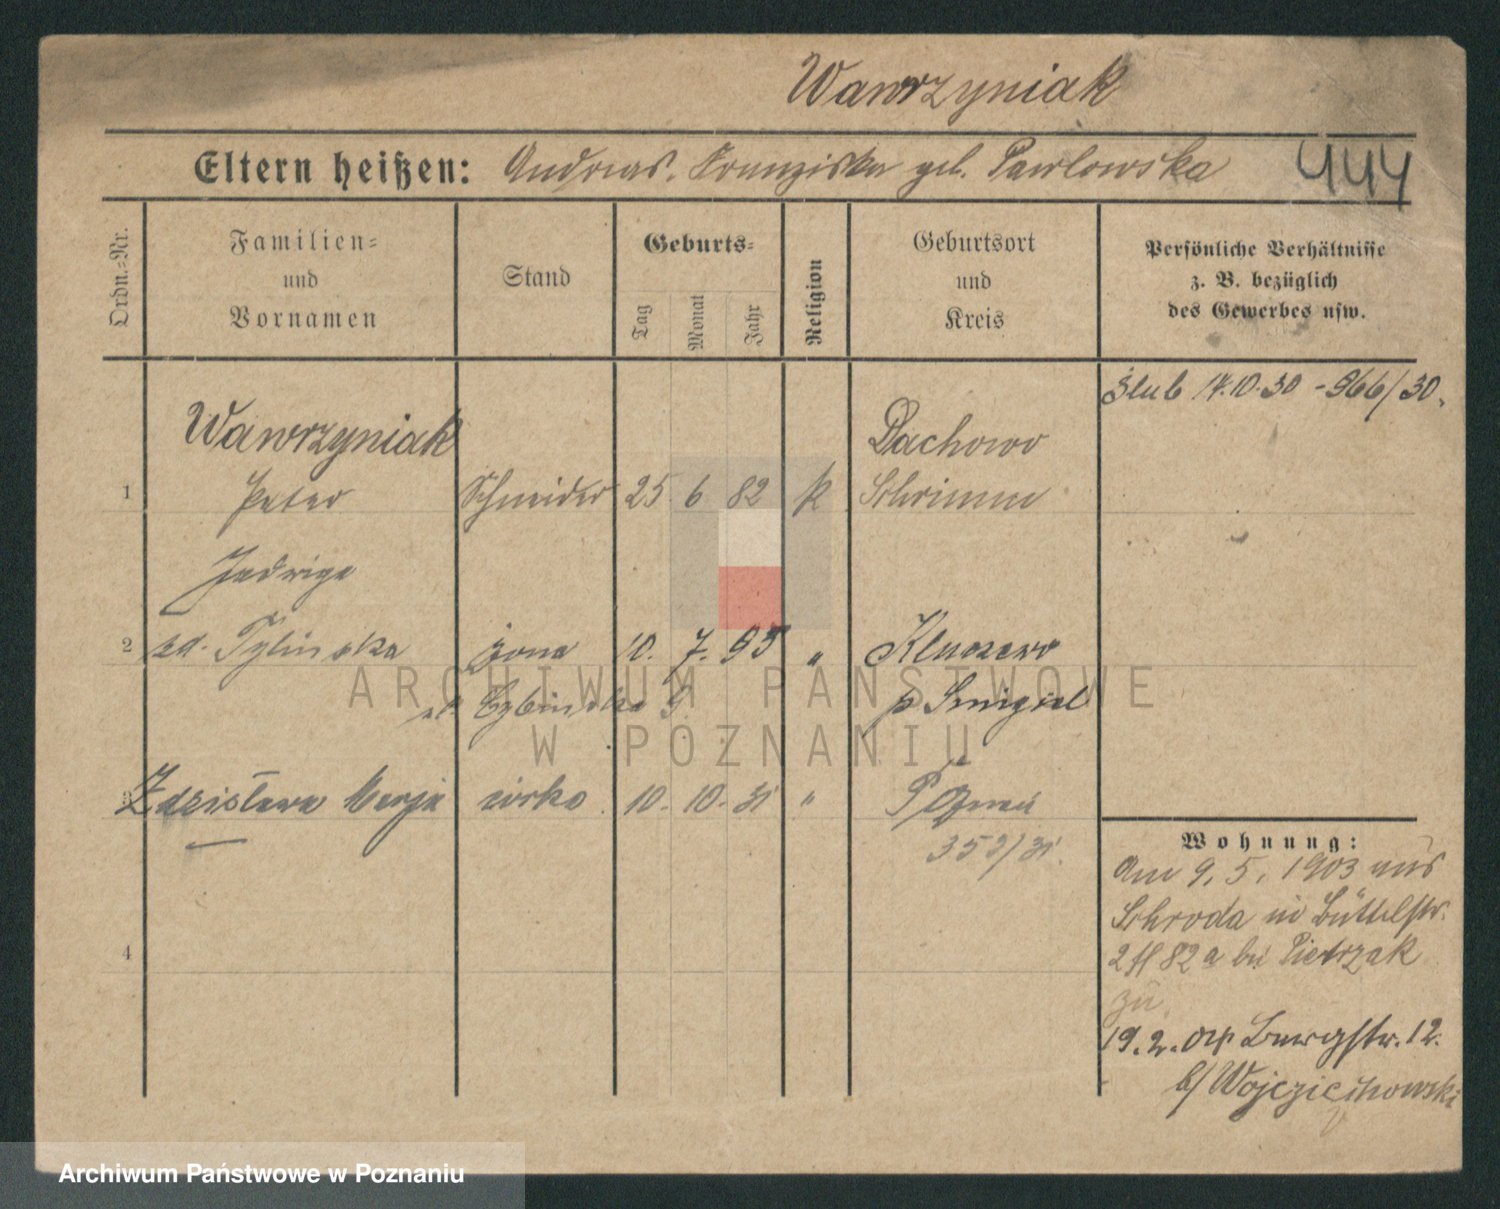 Wawrzyniak
Eltern heißen: Andreas. Franziska geb. Pawlowska 444
Ordn.=Nr.
Familien=
und
Vornamen
Stand
Geburts=
Tag
Monat
Jahr
Religion
Geburtsort
und
Kreis
Persönliche Verhältnisse
z. B. bezüglich
des Gewerbes usw.
Ślub 14.10.30 - 966/30.
Wawrzyniak
Dachowo
1 Peter Schneider 25 6 82 k Schrimm
Jadwiga
2 zd. Tylinska żona 10. 7. 93 „ Kluczewo
Cybinska p Smigiel
3 Zdzisława Marja córka 10. 10. 31 " Poznań
353/31.
Wohnung:
Am 9. 5. 1903 aus
Schroda in Büttelstr.
4
bei Pietrzak
zu
19. 2. 04 Burgstr. 12.
b/ Wojciechowski
ARCHIWUM PAŃSTWOWE
W POZNANIU
Archiwum Państwowe w Poznaniu